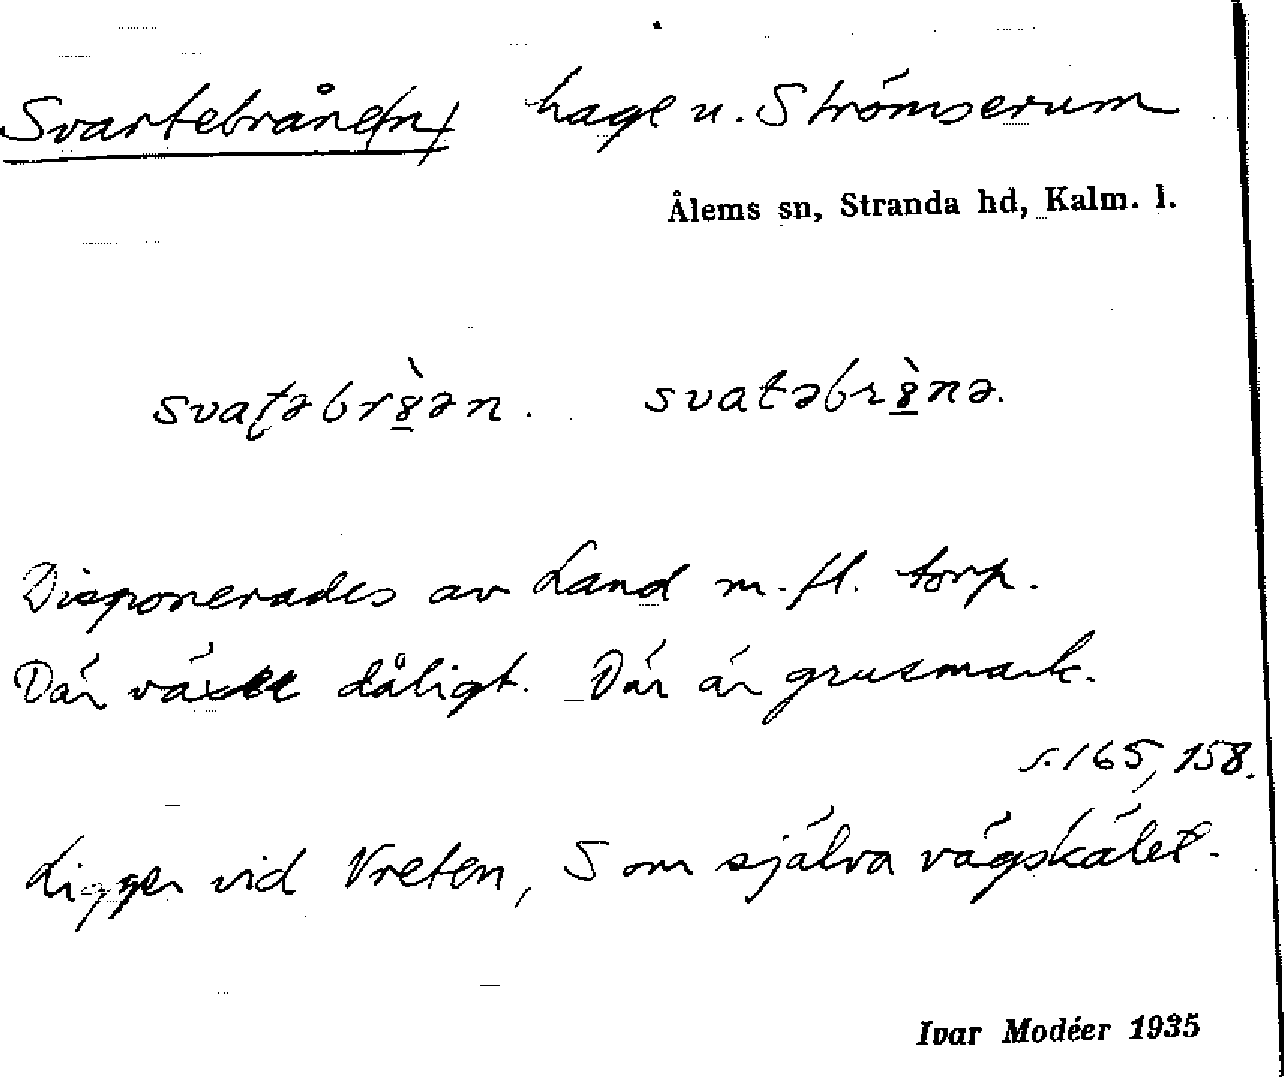 Svartebråne(n) hage u. Strömserum
Ålems sn, Stranda hd, Kalm. l.
Disponerades av Land m. fl. torp.
Där växte dåligt. Där är grusmark.
s. 165, 158.
Ligger vid Vreten, S om själva vägskälet.
Ivar Modéer 1935